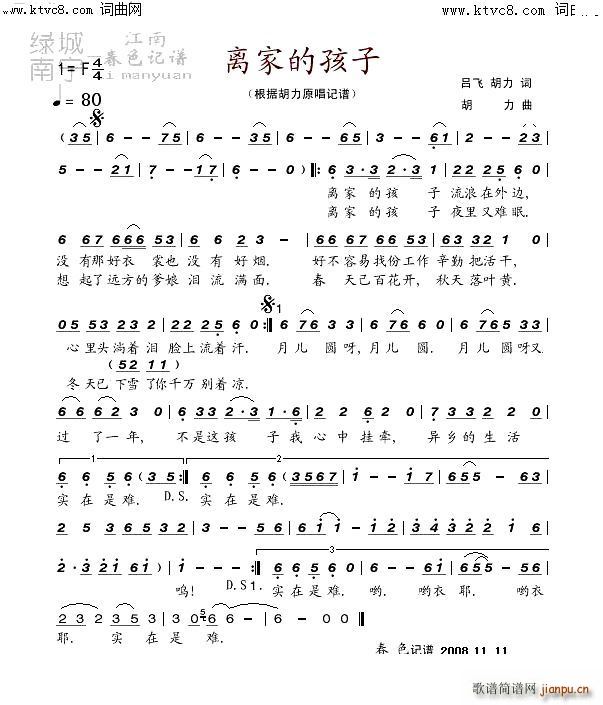 www.ktvc8.com 词曲网
www.ktvc8.com 词曲网
绿城 江南
南宁 春色记谱
imanyuan
离家的孩子
1=F 4/4
（根据胡力原唱记谱）
吕飞 胡力 词
胡 力 曲
♩=80
（3 5 | 6 - - 7 5 | 6 - - 5 6 | 3 - - 5 6 | 3 - - 6 1 | 2 - - 2 3 |
5 - - 2 1 | 7 - - 1 7 | 6 - - 0 ）‖: 6 3·3 2·3 1 | 2 2 2 5 6 0 |
离家 的孩 子 流浪在外边,
离家 的孩 子 夜里又难眠.
6 6 7 6 6 6 5 3 | 6 6 2 3 - | 6 6 6 7 6 6 5 6 | 6 3 3 2 1 0 |
没有那好衣 裳也 没有好烟. 好不容易找份工作 辛勤把活干,
想起了远方的爹娘 泪流满面. 春 天已百花开, 秋天落叶黄.
0 5 5 3 2 3 2 | 2 2 2 5 6 0 :‖ 1 6 7 6 3 3 | 6 7 6 6 0 | 6 7 6 5 3 3 |
心里头淌着泪 脸上流着汗. 月儿 圆呀,月儿 圆. 月儿 圆呀又
（5 2 1 1）
冬天已下雪了你千万别着凉.
6 6 6 2 3 0 | 6 3 3 2·3 1·6 | 2 2 6 2 0 | 7 3 3 2 2 0 |
过 了一年, 不是这孩 子我心中挂牵, 异乡的生活
1 2
6 6 5 6（3 5 :‖ 6 6 5 6（3 5 6 7 | 1 - 1 1 | 2 - - 6 3 |
实在是难. D.S. 实在是难.
2 5 3 6 5 3 2 | 5 - - 3 | 6 1 1 - 1 2 | 3 4 3 2 2 1 6 |
3
2· 3 2 1 6 1）| 1 - - - :‖ 6 6 5 6 | 1 - 1 6 1 | 6 5 5 - 5 6 |
呜! D.S1. 实在是难. 哟. 哟衣耶. 哟衣
2 3 2 3 5 3 | 3 0 5 6 - | 6 - 0 0 ‖
耶. 实在是难.
春 色记谱 2008.11.11
歌谱简谱网
jianpu.cn